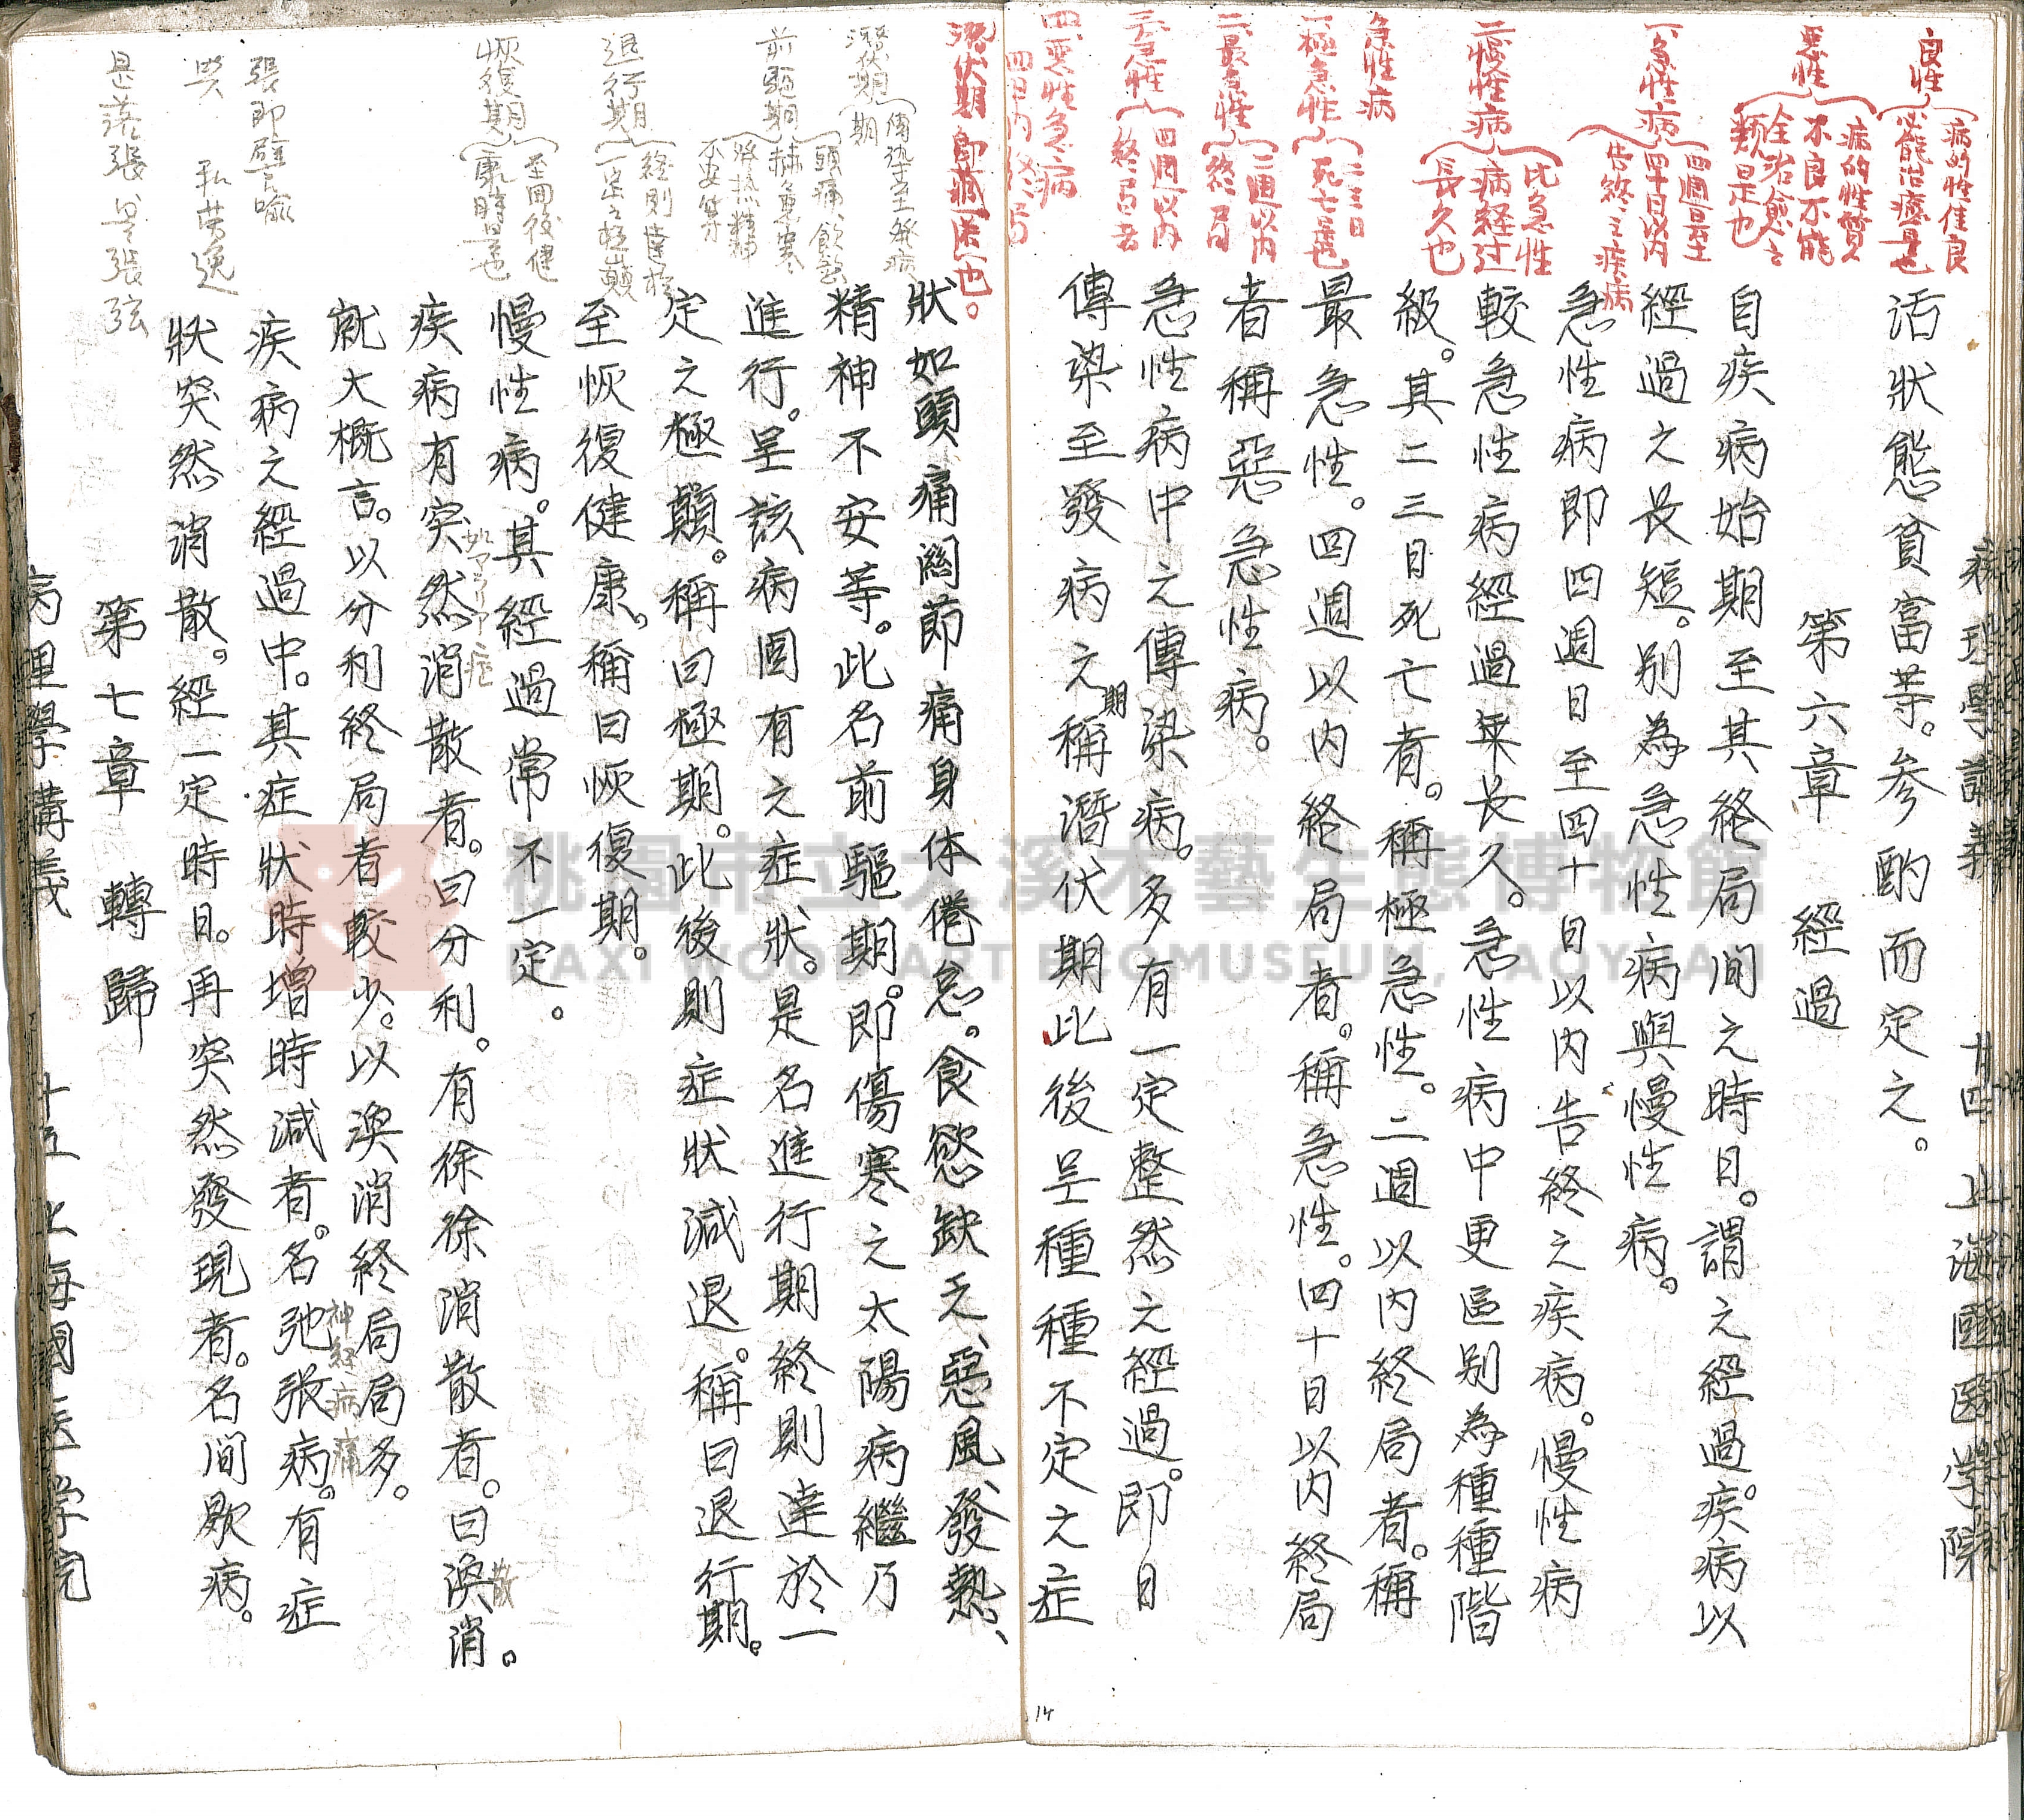 良性
病的性佳良
必能治療是也
惡性
病的性質
不良不能
全治愈之
類是也
一、急性病
四週日至
四十日以內
告終之疾病
二、慢性病
比急性
病経过
長久也
急性病
一、極急性
二三日
死亡是也
二、最急性
二週以內
終局
三、急性
四週以內
終局者
四、惡性急病
潛伏期
傳染至發病
期
前驅期
頭痛、飲慾
不安等
退行期
終則達於
恢復期
至回復健
康時是也
張即譬喻
病理學講義
廿四
上海國医学院
活狀態貧富等。参酌而定之。
第六章 經過
自疾病始期至其終局间之時日。謂之經過。疾病以
經過之長短。别為急性病與慢性病。
急性病即四週日至四十日以内告終之疾病。慢性病
較急性病經過来長久。急性病中更區别為種種階
級。其二三日死亡者。稱極急性。二週以内終局者。稱
最急性。四週以内終局者。稱急性。四十日以内終局
者稱惡急性病。
急性病中之傳染病。多有一定整然之經過。即日
傳染至發病之期稱潛伏期此後呈種種不定之症
14
狀如頭痛関節痛身体倦怠。食慾缺乏、惡風、發熱、
精神不安等。此名前驅期。即傷寒之太陽病繼乃
進行。呈該病固有之症狀。是名進行期終則達於一
定之極顛。稱曰極期。此後則症狀減退。稱曰退行期。
至恢復健康。稱曰恢復期。
慢性病。其經過常不一定。
疾病有突然消散者。曰分利。有徐徐消散者。曰渙消。
散
就大概言。以分利終局者較少。以渙消終局局多。
神経病痛
疾病之經過中。其症狀時增時減者。名弛張病。有症
狀突然消散。經一定時日。再突然發現者。名间歇病。
第七章 轉歸
病理學講義
十五
上海國医学院
桃園市立大溪木藝生態博物館
DAXI WOOD ART ECOMUSEUM, TAOYUAN